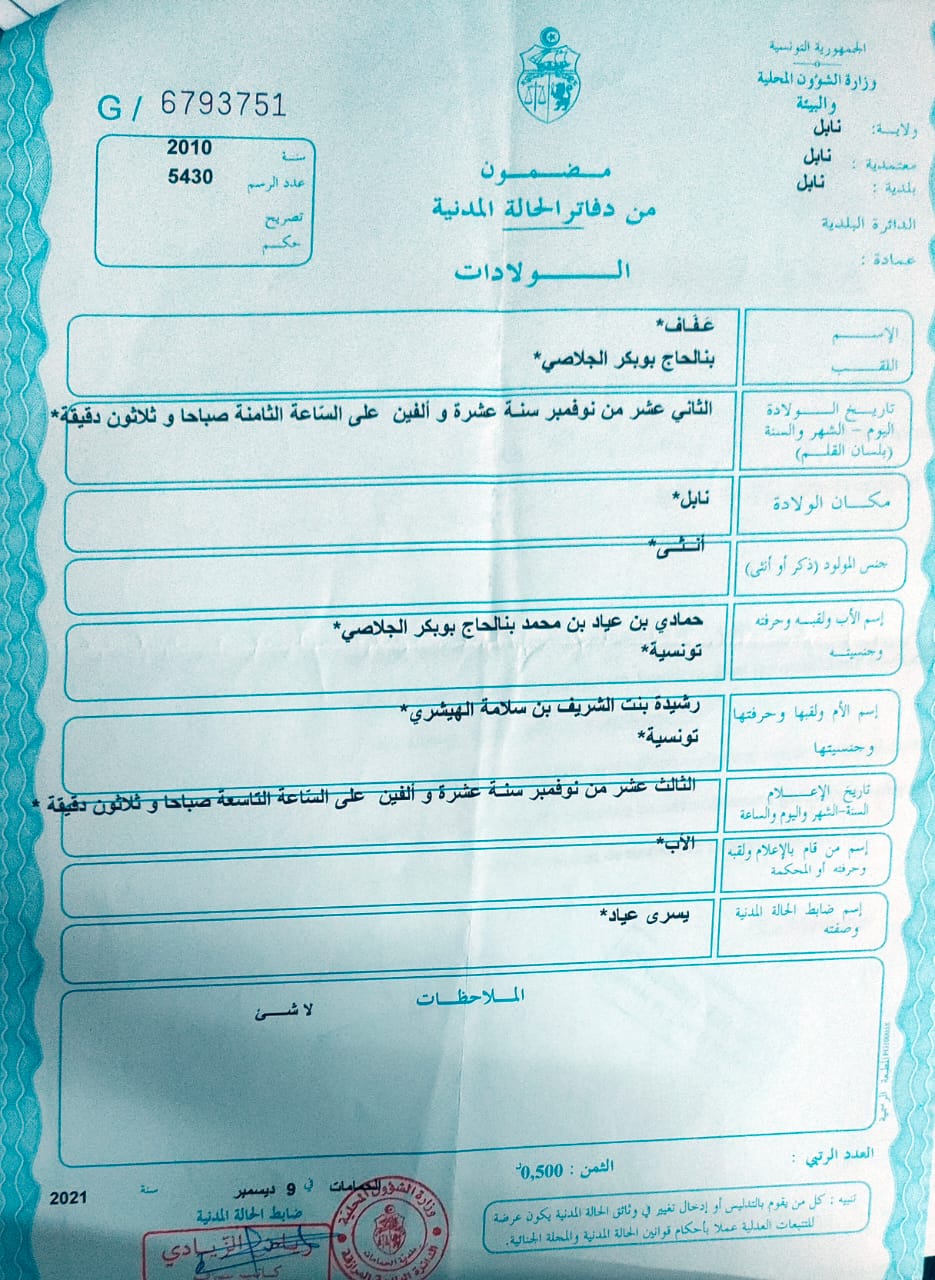 الجمهورية التونسية
وزارة الشؤون المحلية
والبيئة
ولاية: نابل
معتمدية : نابل
بلدية : نابل
الدائرة البلدية
عمادة :
G / 6793751
سنة 2010
عدد الرسم 5430
تصريح
حكم
مضمون
من دفاتر الحالة المدنية
الولادات
الإسم عَفَاف*
اللقب بنالحاج بوبكر الجلاصي*
تاريخ الولادة الثاني عشر من نوفمبر سنة عشرة و ألفين على السّاعة الثامنة صباحا و ثلاثون دقيقة*
اليوم - الشهر والسنة
(بلسان القلم)
مكان الولادة نابل*
جنس المولود (ذكر أو أنثى) أنثى*
إسم الأب ولقبه وحرفته حمادي بن عياد بن محمد بنالحاج بوبكر الجلاصي*
وجنسيته تونسية*
إسم الأم ولقبها وحرفتها رشيدة بنت الشريف بن سلامة الهيشري*
وجنسيتها تونسية*
تاريخ الإعلام الثالث عشر من نوفمبر سنة عشرة و ألفين على السّاعة التاسعة صباحا و ثلاثون دقيقة *
السنة-الشهر واليوم والساعة
إسم من قام بالإعلام ولقبه الأب*
وحرفته أو المحكمة
إسم ضابط الحالة المدنية يسرى عياد*
وصفته
الملاحظات
لا شئ
العدد الرتبي :
الثمن : 0,500د
تنبيه : كل من يقوم بالتدليس أو إدخال تغيير في وثائق الحالة المدنية يكون عرضة
للتتبعات العدلية عملا بأحكام قوانين الحالة المدنية والمجلة الجنائية.
الحمامات في 9 ديسمبر سنة 2021
ضابط الحالة المدنية
وزارة الشؤون المحلية
بلدية الحمامات